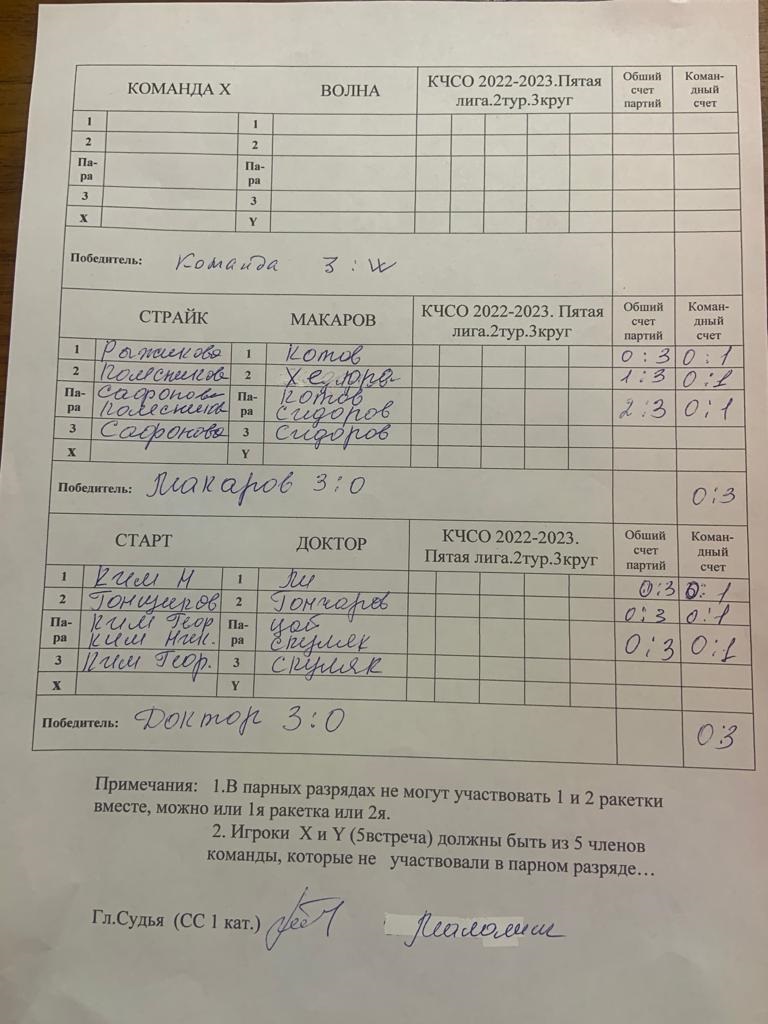 КОМАНДА Х ВОЛНА КЧСО 2022-2023.Пятая лига.2тур.3круг Обший счет партий Коман-дный счет
1 1
2 2
Па-ра Па-ра
3 3
X Y
Победитель: Команда 3 : W
СТРАЙК МАКАРОВ КЧСО 2022-2023. Пятая лига.2тур.3круг Обший счет партий Коман-дный счет
1 Рыжикова 1 Котов 0 : 3 0 : 1
2 Колесников 2 1 : 3 0 : 1
Па- Сафонова Па- Котов
ра Колесников ра Сидоров 2 : 3 0 : 1
3 Сафонова 3 Сидоров
X Y
Победитель: Макаров 3:0 0:3
СТАРТ ДОКТОР КЧСО 2022-2023. Пятая лига.2тур.3круг Обший счет партий Коман-дный счет
1 Ким Н 1 Ли 0:3 0:1
2 Гонщиров 2 Гончаров 0:3 0:1
Па- Ким Геор Па- Цой
ра Ким Ник. ра Скуляк 0:3 0:1
3 Ким Геор. 3 Скуляк
X Y
Победитель: Доктор 3:0 0:3
Примечания: 1.В парных разрядах не могут участвовать 1 и 2 ракетки
вместе, можно или 1я ракетка или 2я.
2. Игроки X и Y (5встреча) должны быть из 5 членов
команды, которые не участвовали в парном разряде…
Гл.Судья (СС 1 кат.)